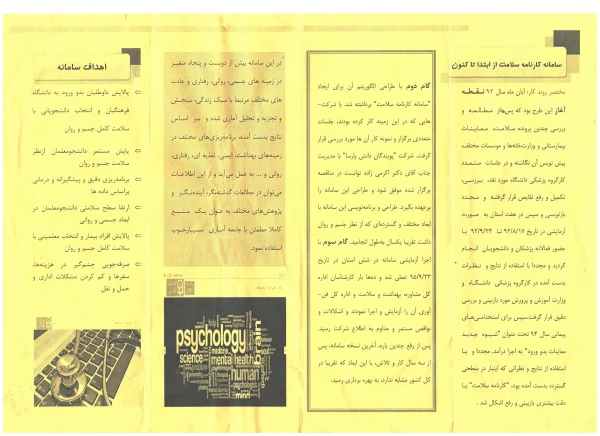 سامانه کارنامه سلامت از ابتدا تا کنون
مختصر روند کار: آبان ماه سال ۹۲ نقطه
آغاز این طرح بود که پس از مطالعه و
بررسی چندین پرونده سلامت، معاینات
بیمارستانی و وزارتخانه‌ها و موسسات مختلف،
پیش نویس آن نگاشته و در جلسات متعدد
کارگروه پزشکی دانشگاه مورد نقد، بررسی،
تکمیل و رفع نقایص قرار گرفته و مجدد
بازنویسی و سپس در هفت استان به صورت
آزمایشی در تاریخ ۹۲/۸/۱۷ تا ۹۲/۹/۲۴ با
حضور فعالانه پزشکان و دانشجویان انجام
گردید و مجددا با استفاده از نتایج و نظرات
بدست آمده در کارگروه پزشکی دانشگاه و
وزارت آموزش و پرورش مورد بازبینی و بررسی
دقیق قرار گرفت. سپس برای استخدامی‌های
پیمانی سال ۹۴ تحت عنوان "شیوه جدید
معاینات بدو ورود" به اجرا درآمد. مجددا و با
استفاده از نتایج و نظراتی که اینبار در سطحی
گسترده بدست آمده بود، "کارنامه سلامت" با
دقت بیشتری بازبینی و رفع اشکال شد.
گام دوم با طراحی الگوریتم آن برای ایجاد
"سامانه کارنامه سلامت" برداشته شد. با شرکت-
هایی که در این زمینه کار کرده بودند، جلسات
متعددی برگزار و نمونه کار آن ها مورد بررسی قرار
گرفت. شرکت "پویندگان دانش پارسا" با مدیریت
جناب آقای دکتر اکرمی زاده توانست در مناقصه
برگزار شده موفق شود و طراحی این سامانه را
برعهده بگیرد. طراحی و برنامه‌نویسی این سامانه با
ابعاد مختلف و گسترده‌ای که از نظر جسم و روان
داشت تقریبا یکسال به‌طول انجامید. گام سوم با
اجرا آزمایشی سامانه در شش استان در تاریخ
۹۵/۹/۲۳ عملی شد و ده‌ها بار کارشناسان اداره
کل مشاوره، بهداشت و سلامت و اداره کل فن-
آوری آن را آزمایش و اجرا نمودند و اشکالات و
نواقص مستمر و مداوم به اطلاع شرکت رسید.
پس از رفع چندین باره، آخرین نسخه سامانه، پس
از سه سال کار و تلاش، با این ابعاد که تقریبا در
کل کشور مشابه ندارد، به بهره برداری رسید.
در این سامانه بیش از دویست و پنجاه متغیر
در زمینه های جسمی، روانی، رفتاری و عادت
های مختلف مرتبط با سبک زندگی، سنجش
و تجزیه و تحلیل آماری شده و بر اساس
نتایج بدست آمده، برنامه‌ریزی‌های مختلف در
زمینه‌های بهداشت، ایمنی، تغذیه ای، رفتاری،
روانی و ... به عمل می‌آید و از این اطلاعات
می‌توان در مطالعات گذشته‌نگر، آینده‌نگر و
پژوهش‌های مختلف به عنوان یک منبع
کاملا مطمئن با جامعه آماری بسیار خوب
استفاده نمود.
psychology
science
medicine
mental health
human
psychological
mind
brain
اهداف سامانه
⇐ پالایش داوطلبان بدو ورود به دانشگاه
فرهنگیان و انتخاب دانشجویانی با
سلامت کامل جسم و روان
⇐ پایش مستمر دانشجومعلمان ازنظر
سلامت جسم و روان
⇐ برنامه‌ریزی دقیق و پیشگیرانه و درمانی
براساس داده ها
⇐ ارتقا سطح سلامتی دانشجومعلمان در
ابعاد جسمی و روانی
⇐ پالایش افراد بیمار و انتخاب معلمینی با
سلامت کامل جسم و روان
⇐ صرفه‌جویی چشمگیر در هزینه‌ها،
سفرها و کم کردن مشکلات اداری و
حمل و نقل